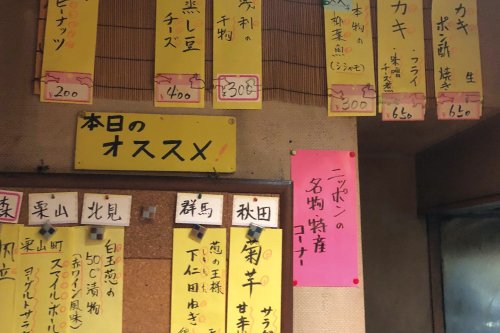 カキ 生
ポン酢焼き
カキ・フライ
・味噌
チーズ煮
650
(シシャモ)
300
干物
300
蒸し豆
チーズ
400
ピーナッツ
200
本日の
オススメ!
ニッポンの
名物・特産
コーナー
秋田
菊芋 サラ
甘辛
群馬
葱の王様
下仁田ねぎ
北見
白玉葱の
50℃漬物
(赤ワイン風味)
栗山
栗山町
スマイルボール
ヨーグルトサラ
森
帆立